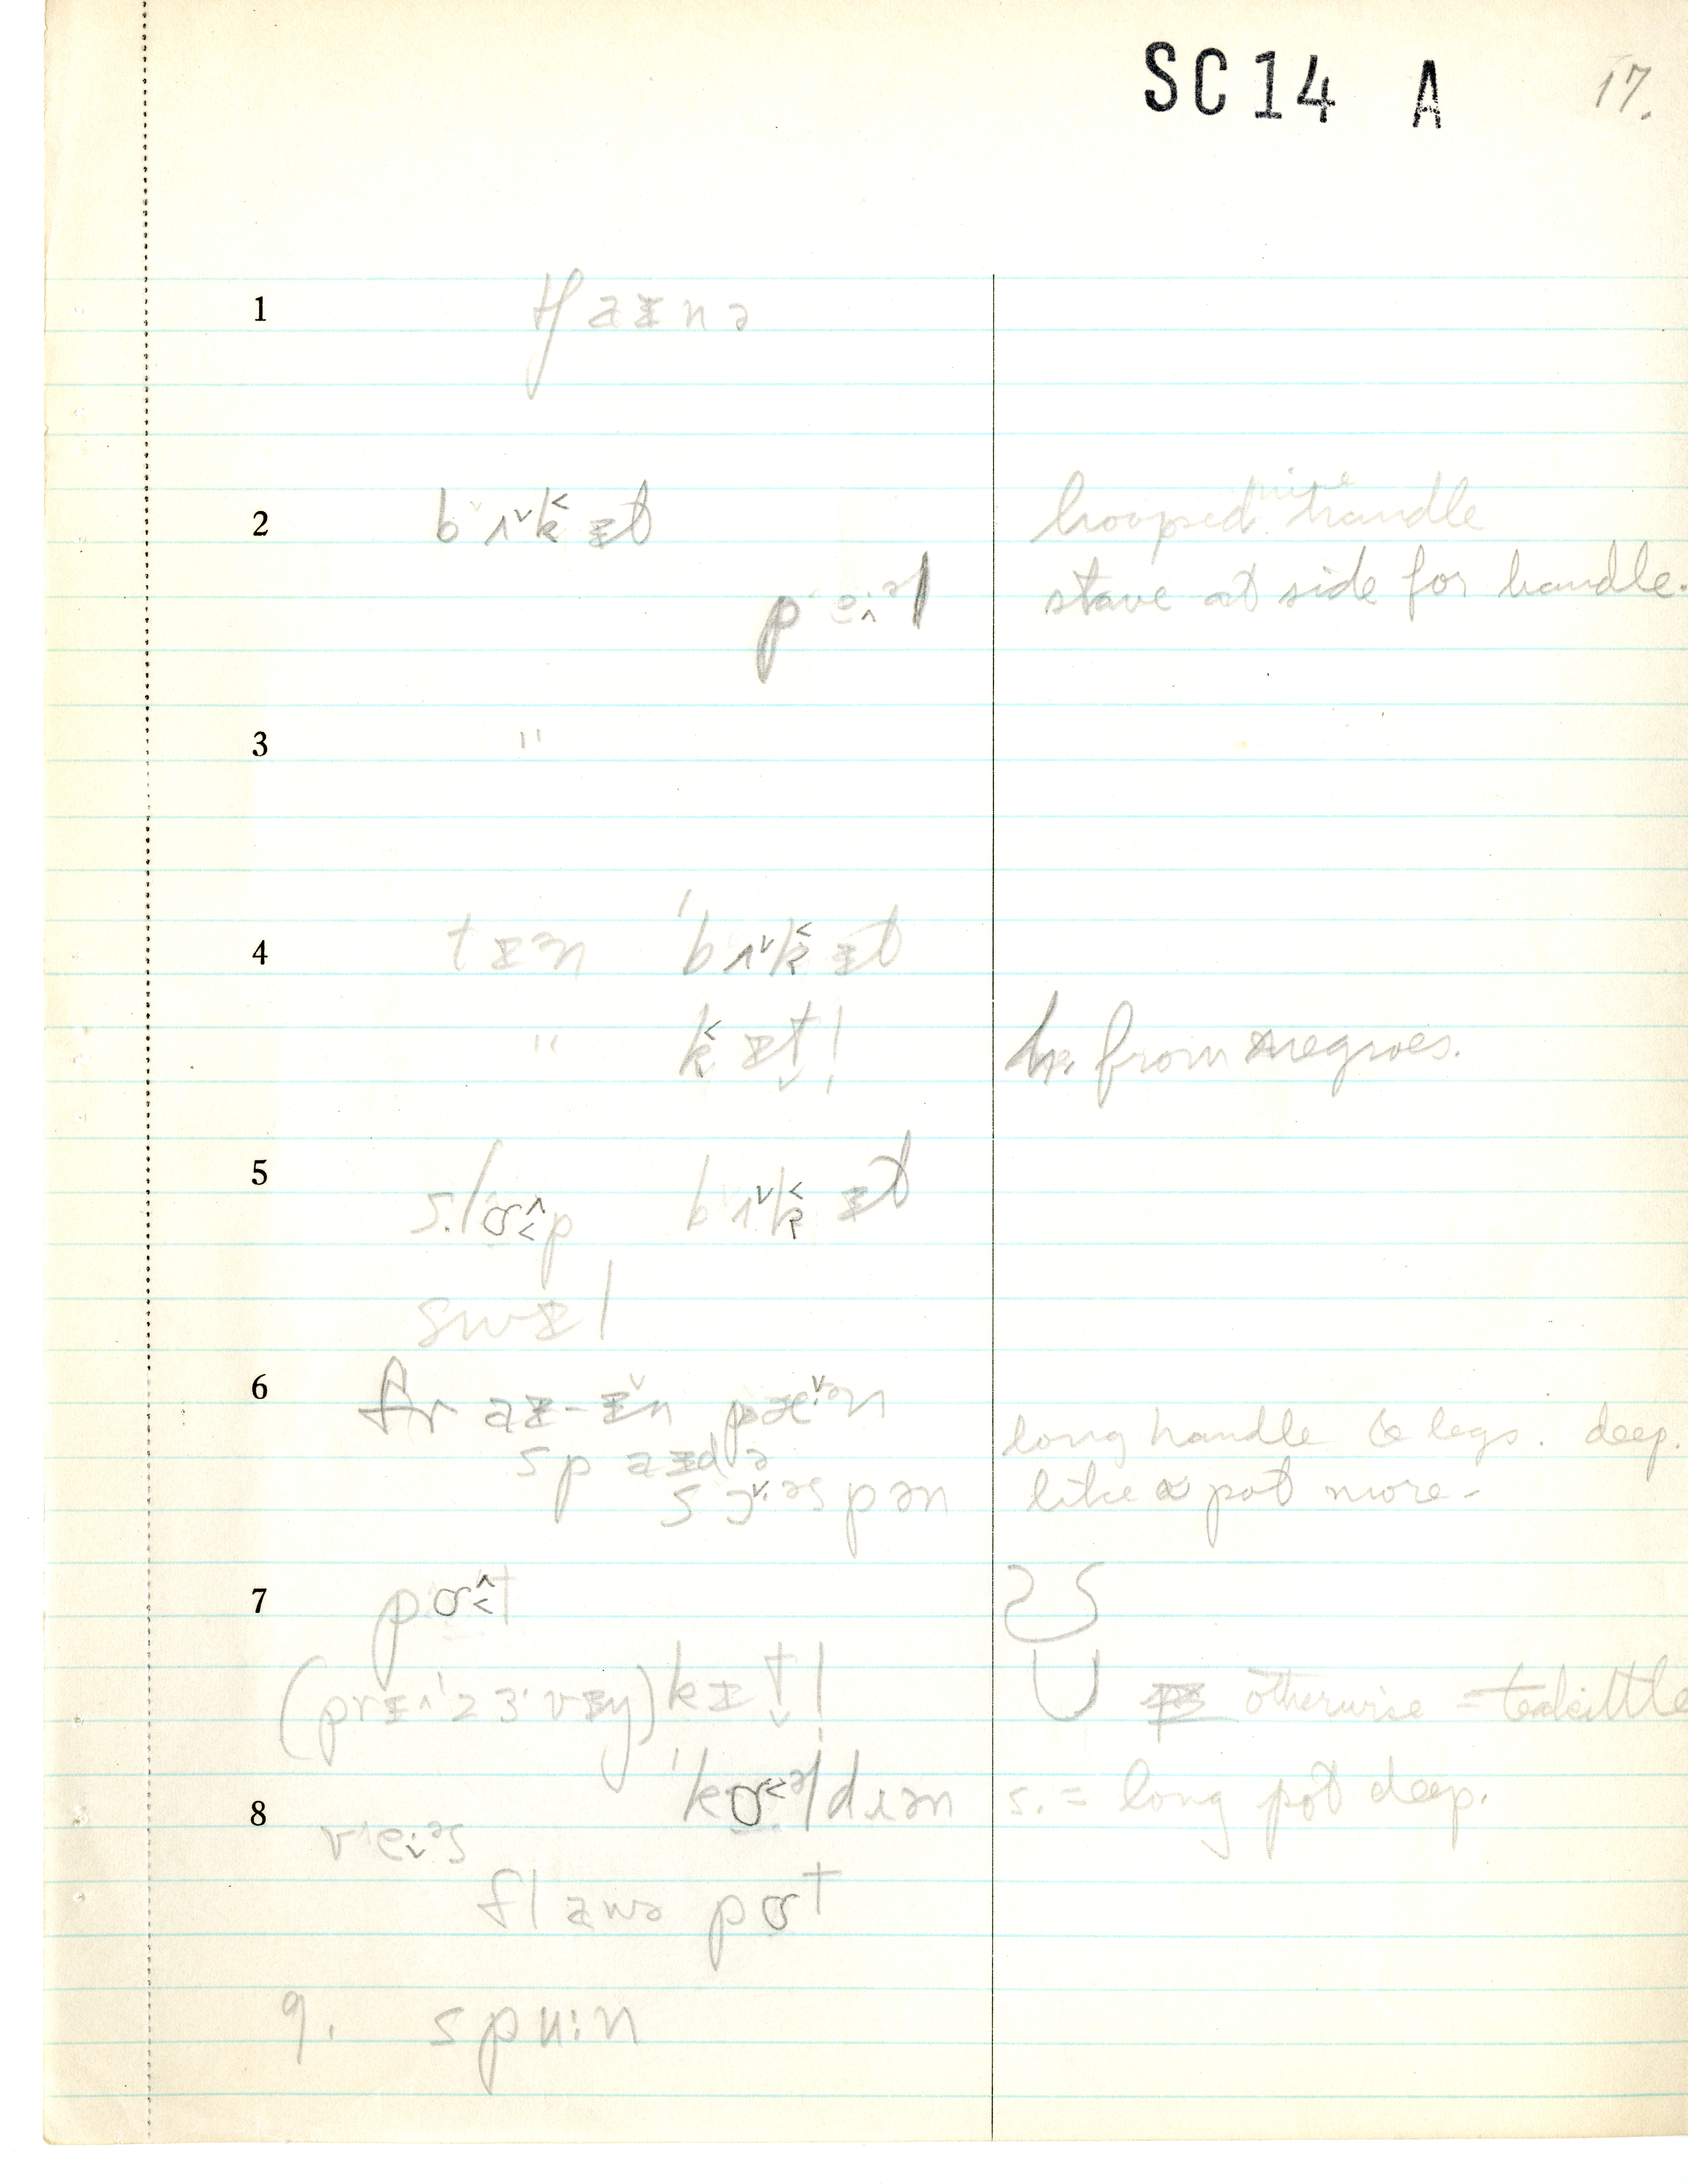 SC14 A 17.
1 tʃaɪnə
2 bʌˇk˂ɪt hooped wire handle
peɪ·əl stave at side for handle.
3 "
4 tɪən ˈbʌˇk˂ɪt
" k˂ɪtl̩ h. from negroes.
5 slɒp bʌˇk˂ɪt
swɪl
6 fraɪ-ɪˇn pæˇ·ən
spaɪdə long handle & legs. deep.
sɔˇ·əspən like a pot more-
7 pɒt
(prɪˈzɜ·vɪŋ) kɪtl̩ otherwise = teakittle
ˈkɒəldɹən s. = long pot deep.
8 veɪ·əs
flawə pɒt
9. spu:n